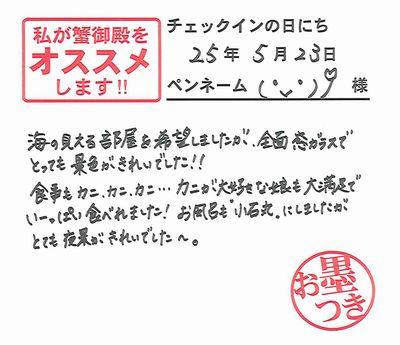 私が蟹御殿を
オススメ
します!!
チェックインの日にち
25年 5月 23日
ペンネーム ('◡')♡ 様
海の見える部屋を希望しましたが、全面窓ガラスで
とっても景色がきれいでした!!
食事もカニ、カニ、カニ… カニが大好きな娘も大満足で
いーっぱい食べれました! お風呂も"小石丸"にしましたが
とても夜景がきれいでした〜。
お墨つき